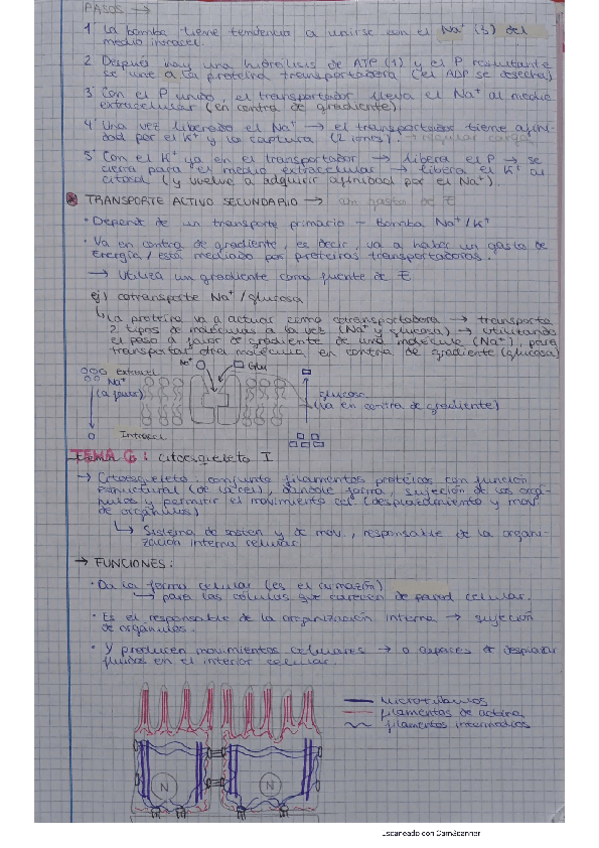 PASOS →
1º La bomba tiene tendencia a unirse con el Na⁺ (3) del
medio intracel.
2 Después hay una hidrólisis de ATP (1) y el P resultante
se une a la proteína transportadora (el ADP se desecha)
3 Con el P unido, el transportador lleva el Na⁺ al medio
extracelular (en contra de gradiente).
4º Una vez liberado el Na⁺ → el transportador tiene afini-
dad por el K⁺ y la captura (2 iones).
5º Con el K⁺ ya en el transportador → libera el P → se
cierra para el medio extracelular → libera el K⁺ al
citosol (y vuelve a adquirir afinidad por el Na⁺).
TRANSPORTE ACTIVO SECUNDARIO → con gasto de E
· Depende de un transporte primario - Bomba Na⁺/K⁺
· Va en contra de gradiente, es decir, va a haber un gasto de
Energía / está mediado por proteínas transportadoras.
→ Utiliza un gradiente como fuente de E
ej) cotransporte Na⁺/glucosa
↳ La proteína va a actuar como cotransportadora → transporta
2 tipos de moléculas a la vez (Na⁺ y glucosa) → utilizando
el paso a favor de gradiente de una molécula (Na⁺), para
transportar otra molécula en contra de gradiente (glucosa)
Na⁺ Glu
Extracel
Na⁺
(a favor)
glucosa
(va en contra de gradiente)
Intracel
TEMA 6: Citoesqueleto I
→ Citoesqueleto: conjunto filamentos protéicos con función
estructural (de la cel), dándole forma, sujeción de los orgá-
nulos y permitir el movimiento cel (desplazamiento y mov
de orgánulos)
↳ Sistema de sostén y de mov., responsable de la organi-
zación interna celular.
→ FUNCIONES:
· Da la forma celular (es el armazón)
↳ para las células que carecen de pared celular.
· Es el responsable de la organización interna → sujeción
de orgánulos.
· Y producen movimientos celulares → o capaces de desplazar
fluidos en el interior celular.
Microtúbulos
filamentos de actina
filamentos intermedios
N N
Escaneado con CamScanner